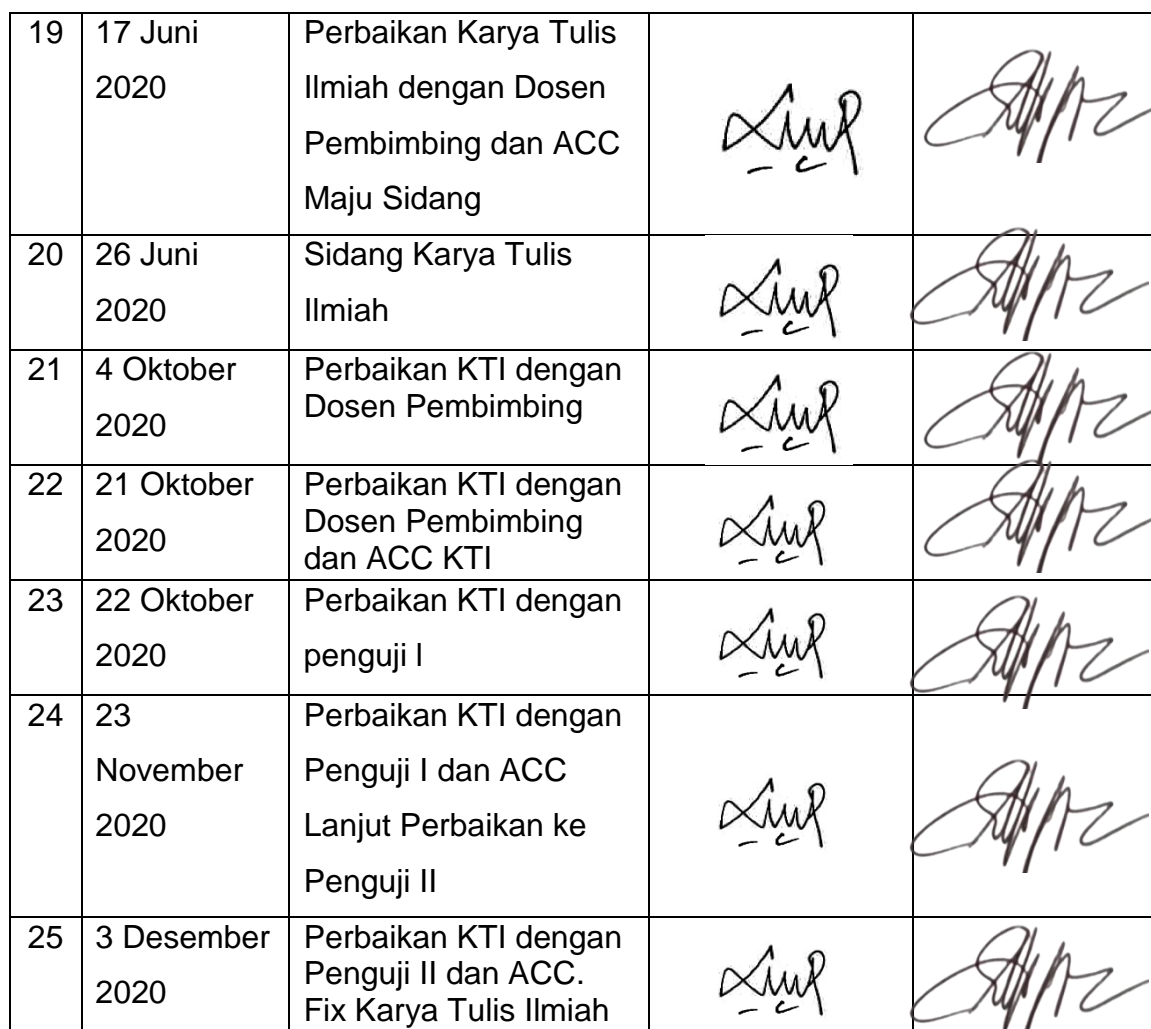 19 17 Juni Perbaikan Karya Tulis
2020 Ilmiah dengan Dosen
Pembimbing dan ACC
Maju Sidang
20 26 Juni Sidang Karya Tulis
2020 Ilmiah
21 4 Oktober Perbaikan KTI dengan
2020 Dosen Pembimbing
22 21 Oktober Perbaikan KTI dengan
2020 Dosen Pembimbing
dan ACC KTI
23 22 Oktober Perbaikan KTI dengan
2020 penguji I
24 23 Perbaikan KTI dengan
November Penguji I dan ACC
2020 Lanjut Perbaikan ke
Penguji II
25 3 Desember Perbaikan KTI dengan
2020 Penguji II dan ACC.
Fix Karya Tulis Ilmiah